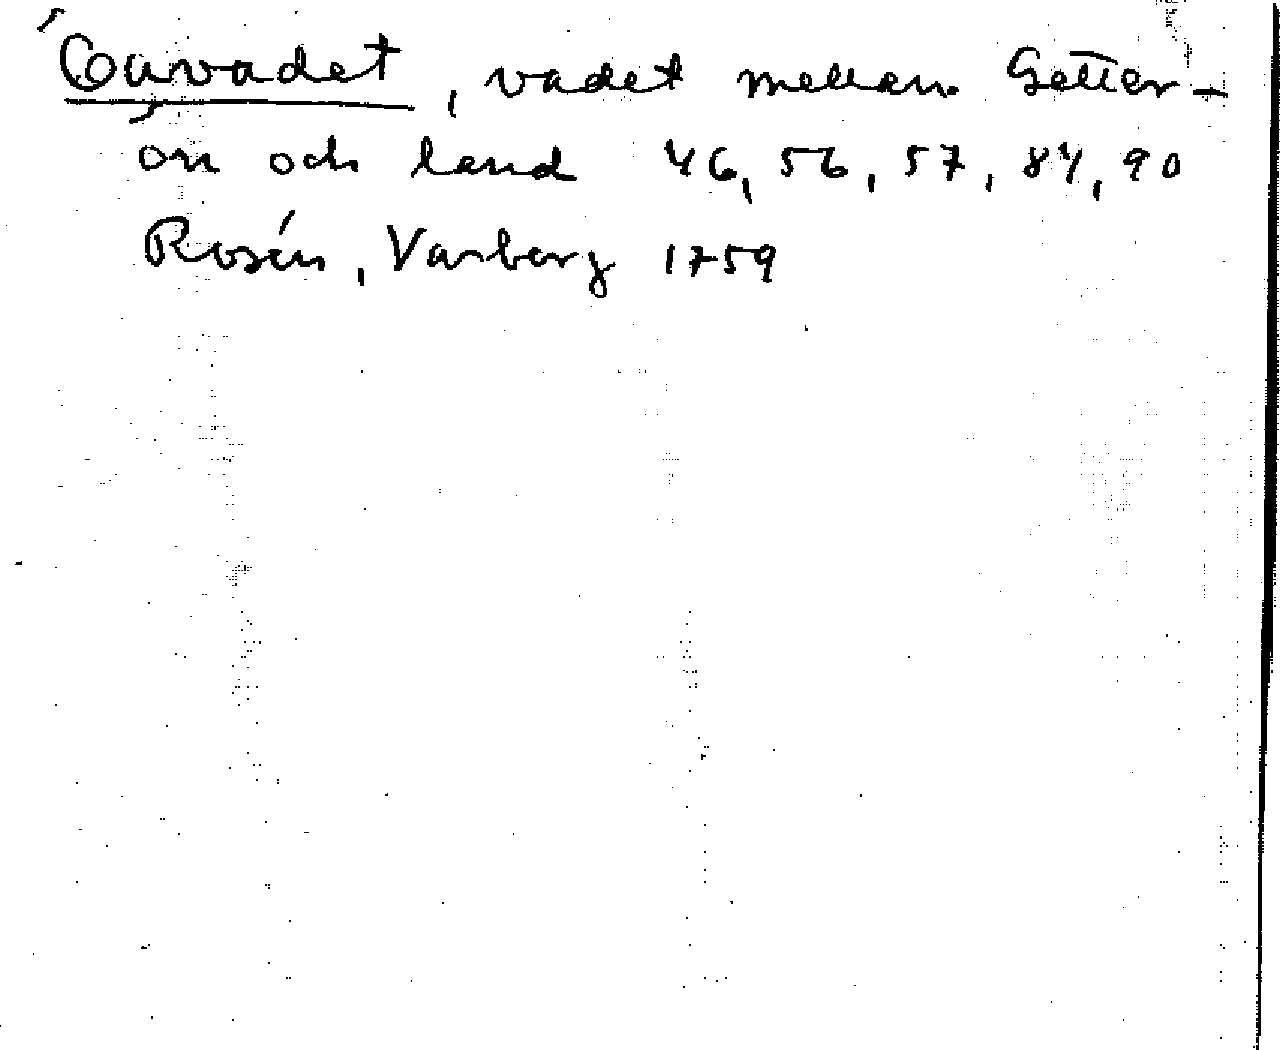 , vadet mellan Getter-
ön och land 46, 56, 57, 84, 90
Rosén, Varberg 1759